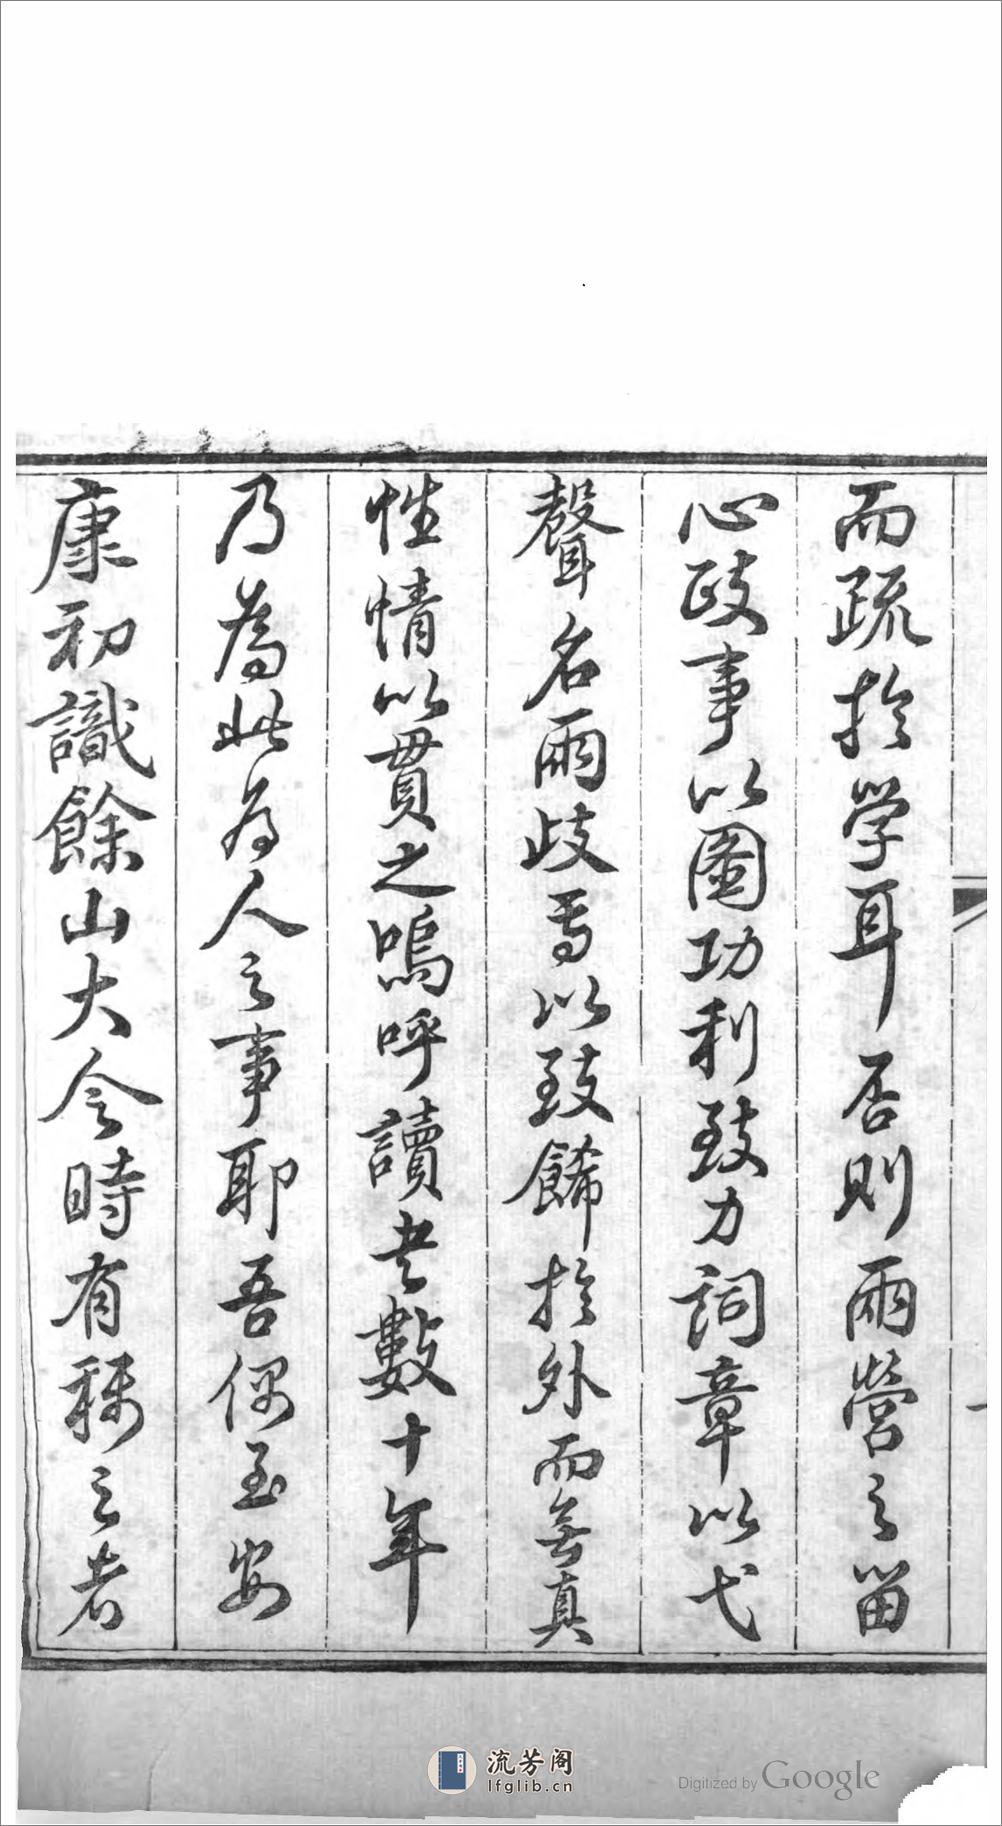 而疏於学耳否則兩營之留
心政事以圖功利致力詞章以弋
聲名兩歧焉以致餙於外而無真
性情以貫之嗚呼讀书數十年
乃為此为人之事耶吾偶至安
康初識餘山大令時有稱之者
流芳阁
lfglib.cn
Digitized by Google